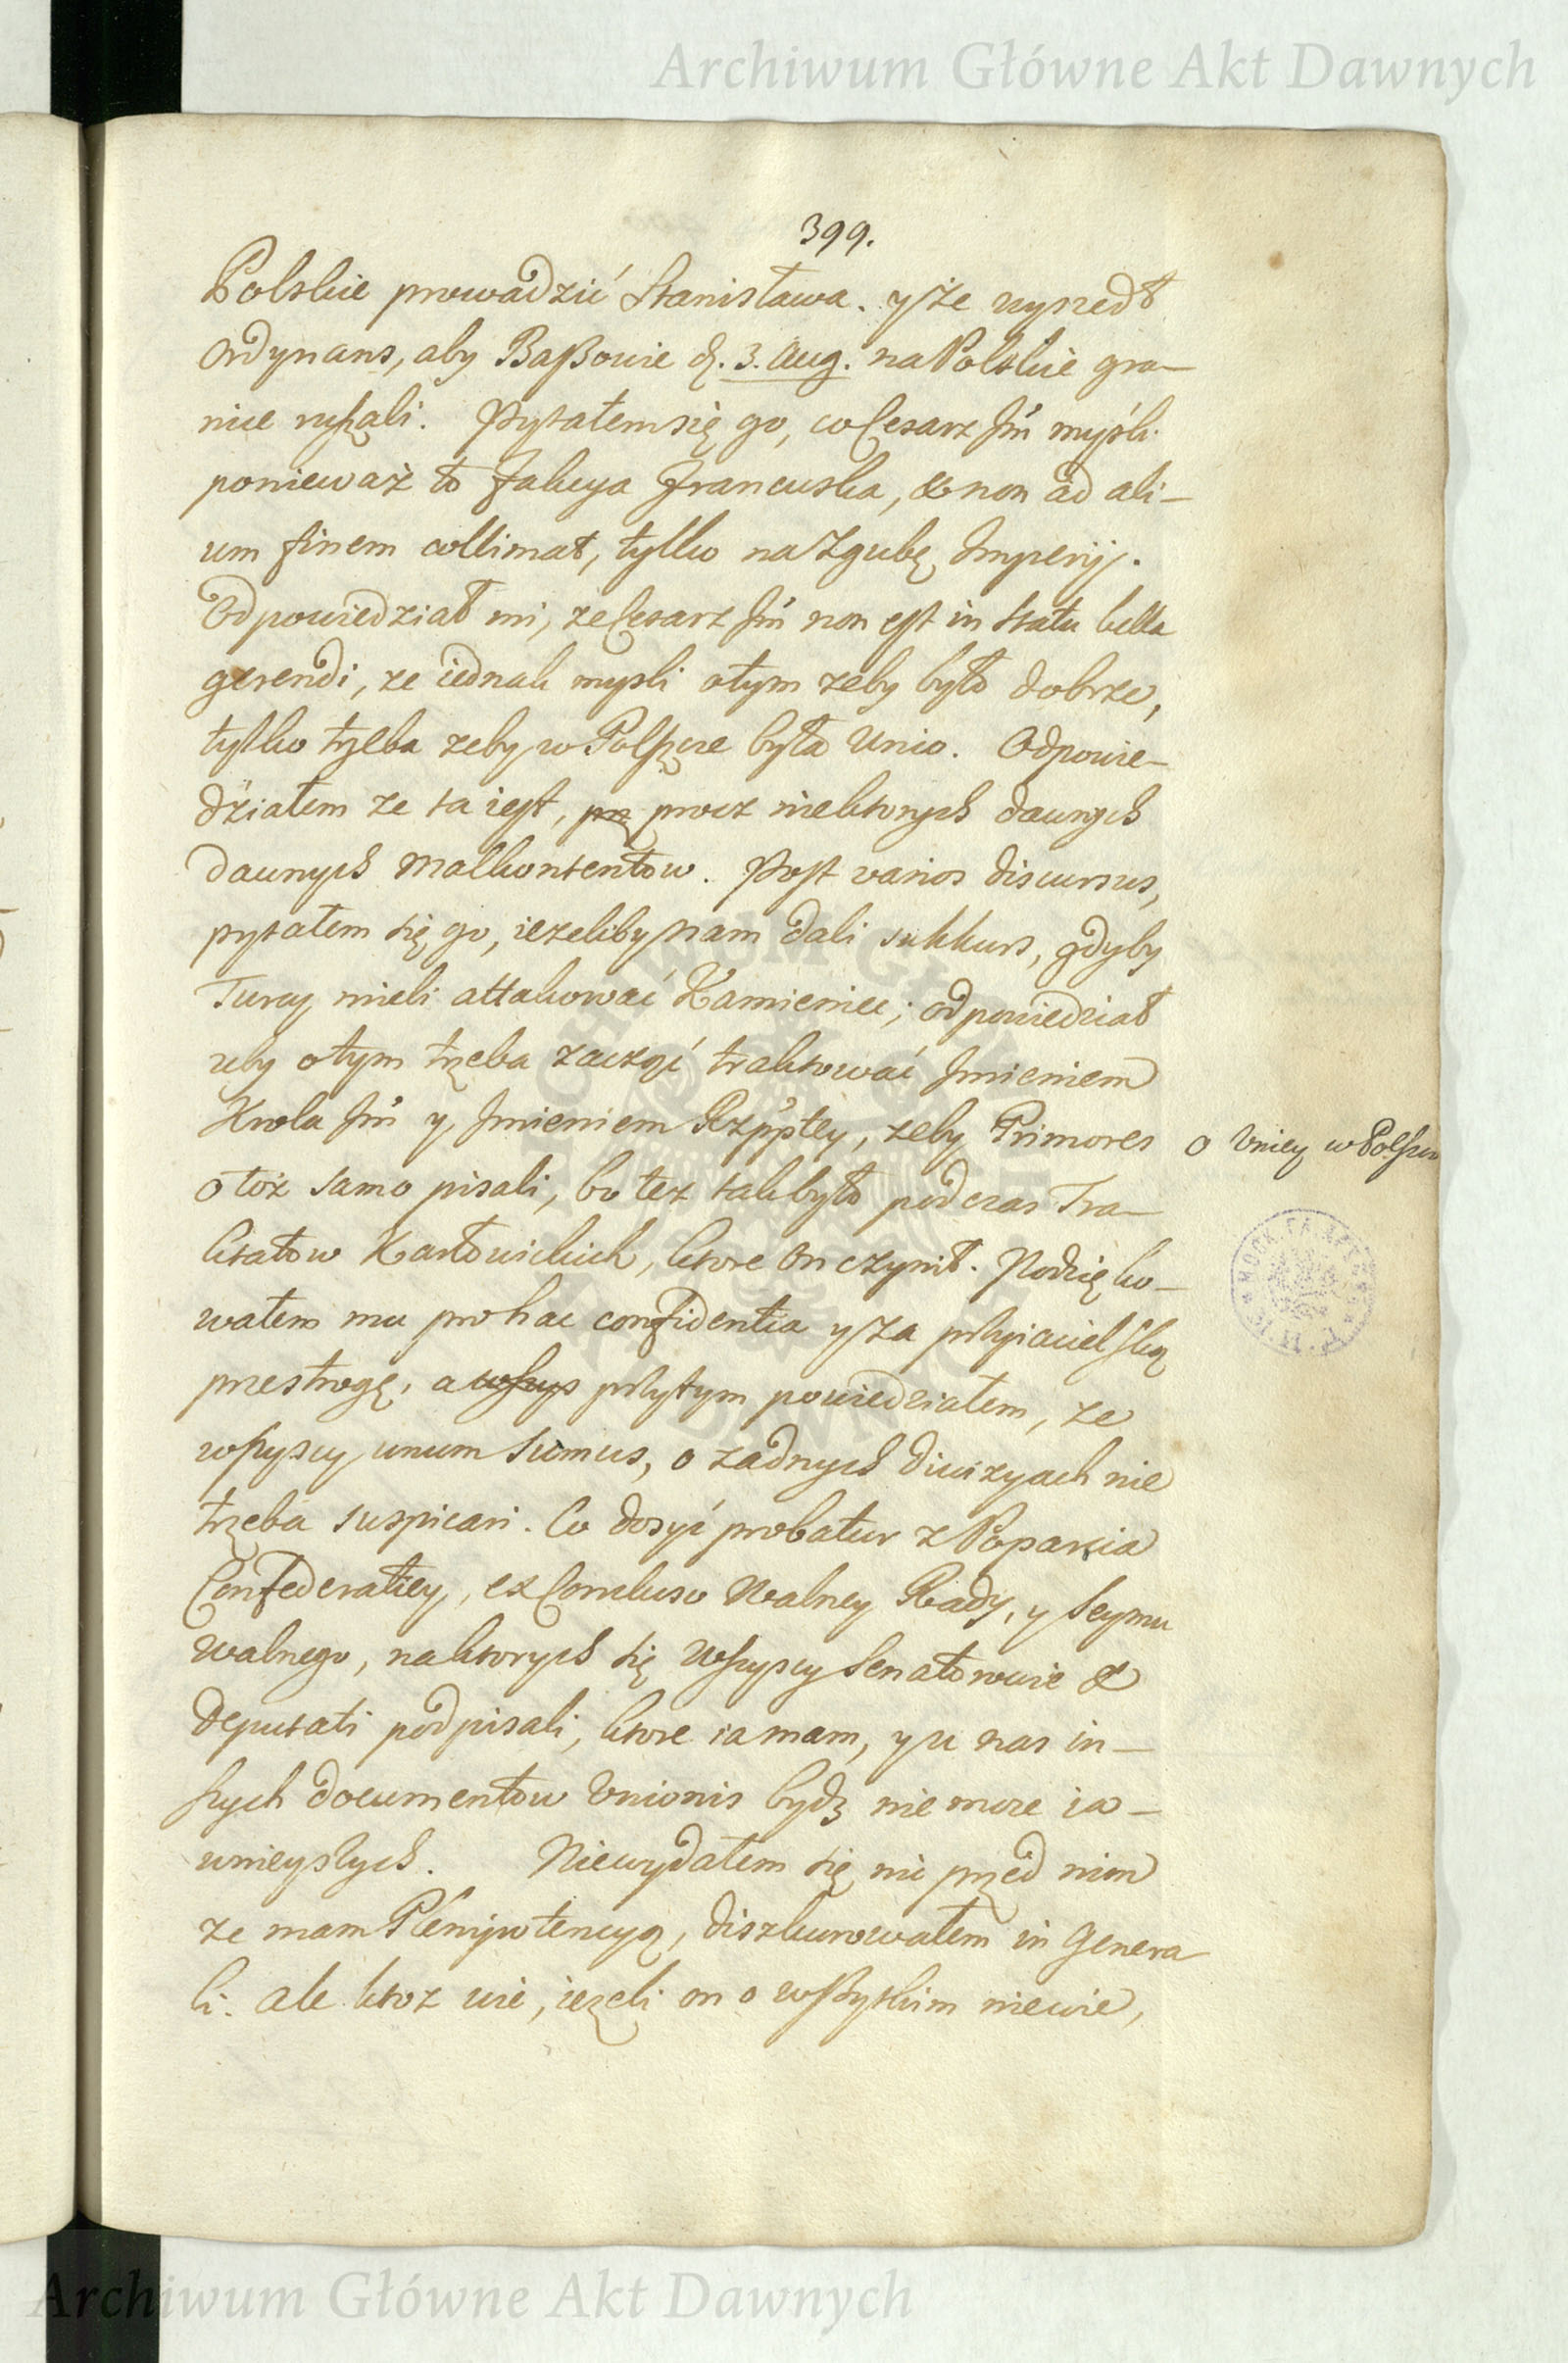 Archiwum Główne Akt Dawnych
399.
Polskie prowadzić Stanisława. y że wyszedł
Ordynans, aby Baßowie d. 3. Aug. na Polskie gra-
nice ruszali. Pytałem się go, co Cesarz Jm̃ myśli
ponieważ to fakcya Francuska, & non ad ali-
um finem collimat, tylko na Zgubę Imperij.
Odpowiedział mi, ze Cesarz Jm̃ non est in statu bella
gerendi, ze iednak mysli otym zeby było dobrze,
tylko trzeba zeby w Polszcze była Unio. Odpowie-
działem ze ta iest, prz procz niektorych dawnych
dawnych Malkontentow. Post varios discursus,
pytałem się go, iezeliby nam dali sukkurs, gdyby
Turcy mieli attakować Kamieniec; odpowiedział
zeby otym trzeba zacząć traktować Imieniem
Krola Jm̃ y Imieniem Rzpptey, zeby Primores
o Vniey w Polszcze
otoż samo pisali, bo tez tak było podczas Tra-
ktatow Karłowickich, ktore On czynił. Podzięko-
wałem mu pro hac confidentia y za przyiacielską
przestrogę, a wszys przytym powiedziałem, ze
wszyscy unum sumus, o zadnych diwizyach nie
trzeba suspicari. Co dosyć probatur z Poparcia
Confederatiey, ex Concluso Walney Rady, y Seymu
walnego, na ktorych się wszyscy Senatorowie &
Deputati podpisali, ktore ia mam, y u nas in-
szych documentow Vnionis bydz nie moze ia-
wnieyszych. Niewydałem się nic przed nim
ze mam Plenipotencyą, diszkurowałem in Genera
li. ale ktoz wie, iezeli on o wßytkim niewie,
Archiwum Główne Akt Dawnych